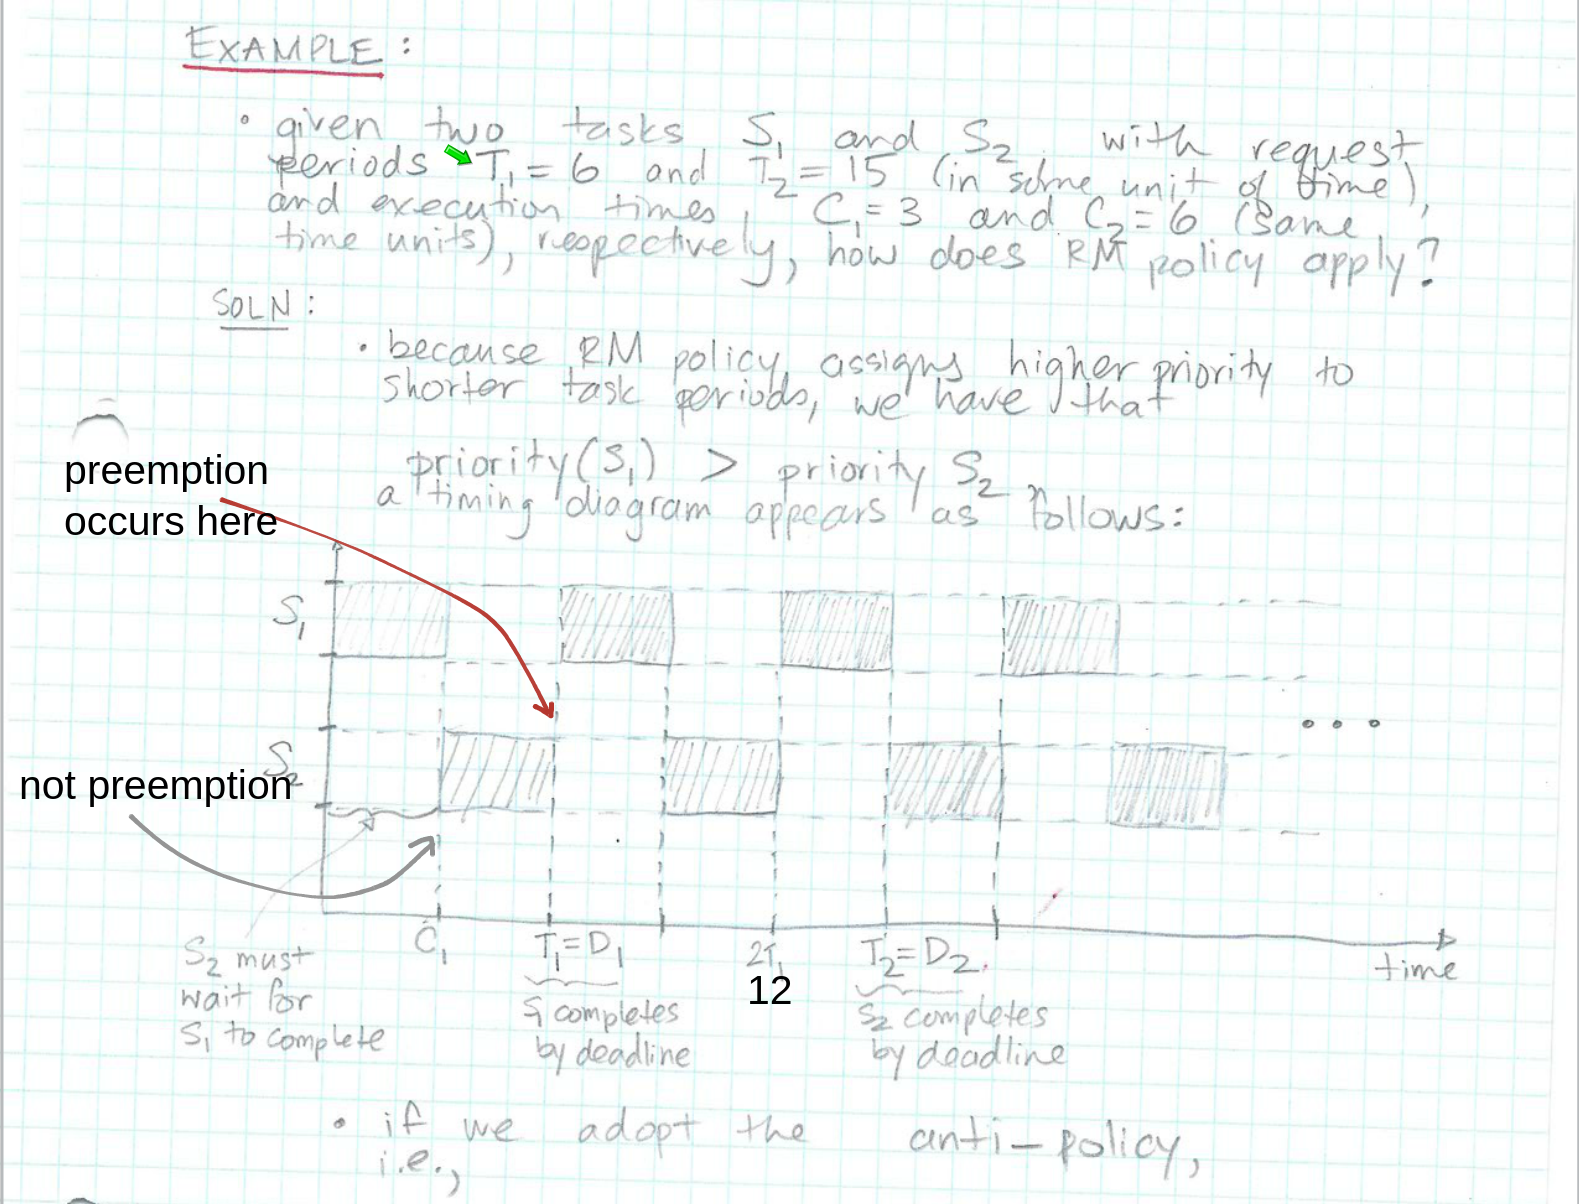 EXAMPLE:
• given two tasks S₁ and S₂ with request
periods T₁ = 6 and T₂ = 15 (in some unit of time),
and execution times, C₁ = 3 and C₂ = 6 (same
time units), respectively, how does RM policy apply?
SOLN:
• because RM policy assigns higher priority to
shorter task periods, we have that
priority(S₁) > priority S₂
a timing diagram appears as follows:
preemption
occurs here
S₁
S₂
not preemption
• • •
C₁
T₁=D₁
2T₁
12
T₂=D₂.
time
S₂ must
wait for
S₁ to complete
S₁ completes
by deadline
S₂ completes
by deadline
• if we adopt the anti-policy,
i.e.,